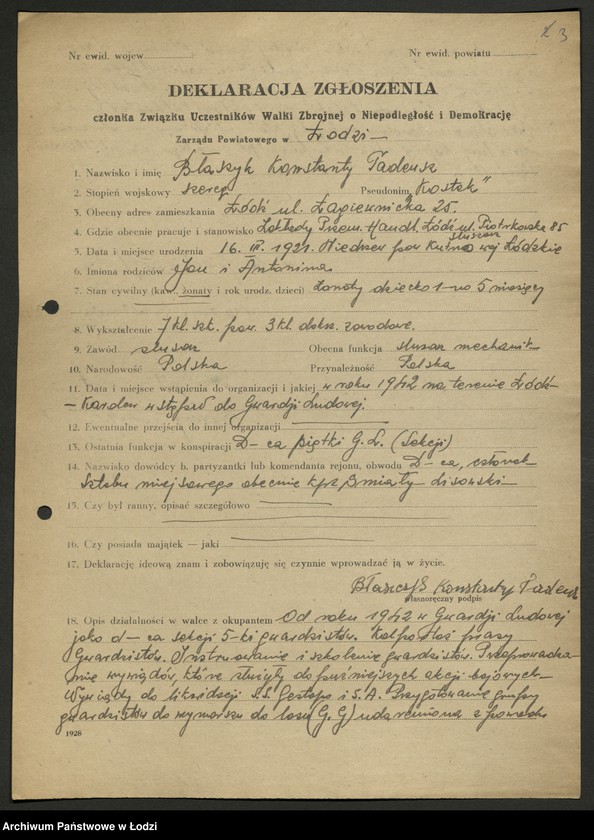 3
Nr ewid. wojew. Nr ewid. powiatu
DEKLARACJA ZGŁOSZENIA
członka Związku Uczestników Walki Zbrojnej o Niepodległość i Demokrację
Zarządu Powiatowego w Łodzi —
1. Nazwisko i imię Błaszyk Konstanty Tadeusz
2. Stopień wojskowy szereg Pseudonim „Kostek"
3. Obecny adres zamieszkania Łódź ul. Łagiewnicka 25.
4. Gdzie obecnie pracuje i stanowisko Zakłady Przem. Handl. Łódź ul. Piotrkowska 85
ślusarz
5. Data i miejsce urodzenia 16. III. 1921. pow Kutno woj Łódzkie
6. Imiona rodziców Jan i Antonina
7. Stan cywilny (kaw., żonaty i rok urodz. dzieci) żonaty dziecko 1-no 5 miesięcy
8. Wykształcenie 7 kl. szk. pow. 3 kl. doksz. zawodowe.
9. Zawód ślusarz Obecna funkcja ślusarz mechanik
10. Narodowość Polska Przynależność Polska
11. Data i miejsce wstąpienia do organizacji i jakiej w roku 1942 na terenie Łódź —
— Karolew wstąpił do Gwardji Ludowej.
12. Ewentualne przejścia do innej organizacji
13. Ostatnia funkcja w konspiracji D—ca piątki G. L. (Sekcji)
14. Nazwisko dowódcy b. partyzantki lub komendanta rejonu, obwodu D—ca, członek
Sztabu miejscowego obecnie kpt. Śmiały — Lisowski —
15. Czy był ranny, opisać szczegółowo
16. Czy posiada majątek — jaki
17. Deklarację ideową znam i zobowiązuję się czynnie wprowadzać ją w życie.
Konstanty Tadeusz
własnoręczny podpis
18. Opis działalności w walce z okupantem Od roku 1942 w Gwardji Ludowej
jako d—ca sekcji 5-ki gwardzistów. Kolportaż prasy
Gwardzistów. Instruowanie i szkolenie gwardzistów. Przeprowadza-
nie wywiadów, które służyły do późniejszych akcji bojowych —
Wywiady do likwidacji S.S. Gestapo i S. A. Przygotowanie grupy
gwardzistów do wymarszu do lasu (G. G) udaremniona z powodu
1928
Archiwum Państwowe w Łodzi